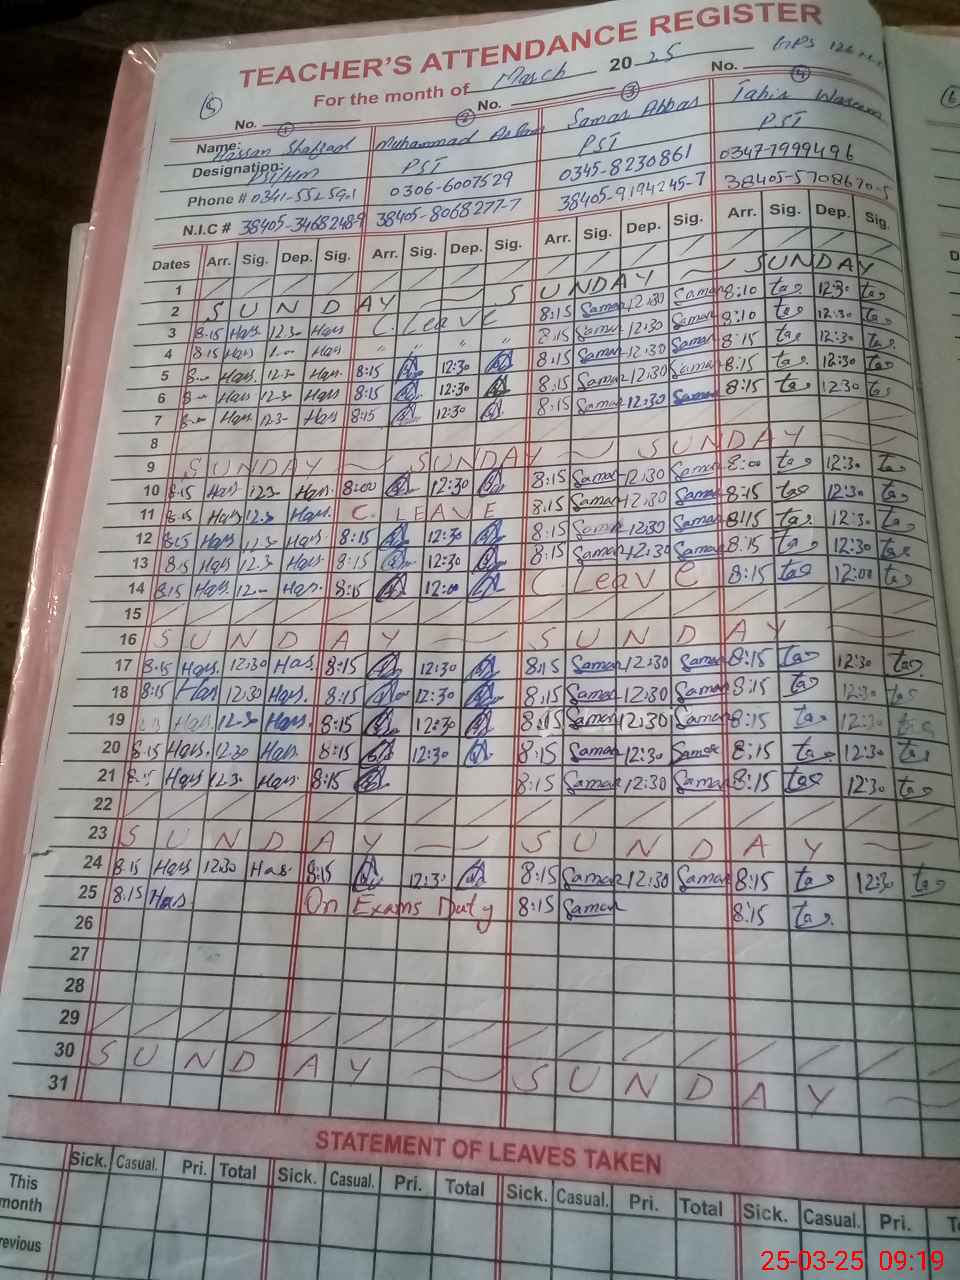 TEACHER'S ATTENDANCE REGISTER
For the month of March 2025
5
No. 1 No. 2 3 No. 4
Name: Hassan Shahzad Muhammad Samar Abbas Tahir Waseem
Designation: PST/HM PST PST PST
Phone # 0306-6007529 0345-8230861 0347-7999496
N.I.C # 38405-3468248-9 38405-8068277-7 38405-9194245-7 38405-5708670-5
Dates Arr. Sig. Dep. Sig. Arr. Sig. Dep. Sig. Arr. Sig. Dep. Sig. Arr. Sig. Dep. Sig.
1
2 SUNDAY SUNDAY SUNDAY
3 8:15 Has 12:30 Has C. Leave 8:15 Samar 12:30 Samar 8:10 tas 12:30 tas
4 8:15 Has Has " " " " 8:15 Samar 12:30 Samar 8:10 tas 12:30 tas
5 Has 12:30 Has 8:15 12:30 8:15 Samar 12:30 Samar 8:15 tas 12:30 tas
6 Has 12:30 Has 8:15 12:30 8:15 Samar 12:30 Samar 8:15 tas 12:30 tas
7 Has 12:30 Has 8:15 12:30 8:15 Samar 12:30 Samar 8:15 tas 12:30 tas
8
9 SUNDAY SUNDAY SUNDAY
10 8:15 Has 12:30 Has 8:00 12:30 8:15 Samar 12:30 Samar 8:00 tas 12:30 tas
11 8:15 Has 12:30 Has C. LEAVE 8:15 Samar 12:30 Samar 8:15 tas 12:30 tas
12 8:15 Has 12:30 Has 8:15 12:30 8:15 Samar 12:30 Samar 8:15 tas 12:30 tas
13 8:15 Has 12:30 Has 8:15 12:30 8:15 Samar 12:30 Samar 8:15 tas 12:30 tas
14 8:15 Has 12:00 Has 8:15 12:00 C. Leave 8:15 tas 12:00 tas
15
16 SUNDAY SUNDAY
17 8:15 Has 12:30 Has 8:15 12:30 8:15 Samar 12:30 Samar 8:15 tas 12:30 tas
18 8:15 Has 12:30 Has 8:15 12:30 8:15 Samar 12:30 Samar 8:15 tas 12:30 tas
19 Has 12:30 Has 8:15 12:30 8:15 Samar 12:30 Samar 8:15 tas 12:30 tas
20 8:15 Has 12:30 Has 8:15 12:30 8:15 Samar 12:30 Samar 8:15 tas 12:30 tas
21 Has 12:30 Has 8:15 8:15 Samar 12:30 Samar 8:15 tas 12:30 tas
22
23 SUNDAY SUNDAY
24 8:15 Has 12:30 Has 8:15 12:30 8:15 Samar 12:30 Samar 8:15 tas 12:30 tas
25 8:15 Has On Exams Duty 8:15 Samar 8:15 tas
26
27
28
29
30 SUNDAY SUNDAY
31
STATEMENT OF LEAVES TAKEN
Sick. Casual. Pri. Total Sick. Casual. Pri. Total Sick. Casual. Pri. Total Sick. Casual. Pri.
This month
revious
25-03-25 09:19